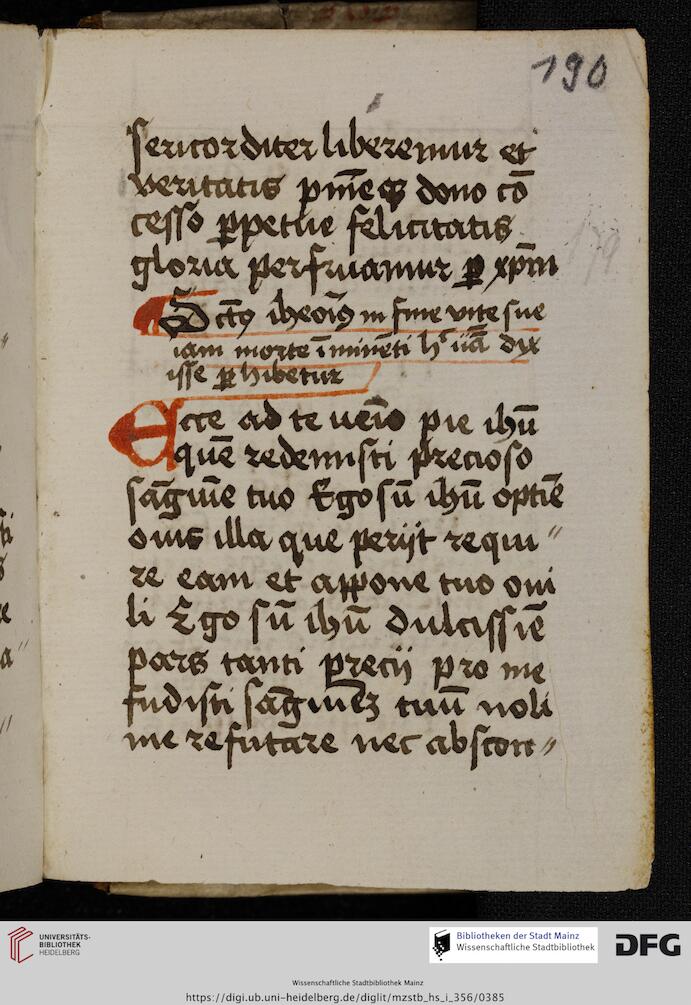 190
sericorditer liberemur et
veritatis pm̄eqꝫ dono cō
cesso ꝑpetue felicitatis
gloria perfruamur ꝑ xp̄m
179
iheōīꝰ in fine vite sue
iam morte īminēti dix
isse ꝑhibetur
Ecce ad te ueīo pie ihū
quē redemisti precioso
sāguīe tuo Ego sū ihū optīe
ouis illa que perijt requi〃
re eam et appone tuo oui
li Ego sū ihū dulcissīe
pars tanti precij pro me
fudisti sāguinēꝫ tuū noli
me refutare nec abscon〃
UNIVERSITÄTS-
BIBLIOTHEK
HEIDELBERG
Bibliotheken der Stadt Mainz
Wissenschaftliche Stadtbibliothek
DFG
Wissenschaftliche Stadtbibliothek Mainz
https://digi.ub.uni-heidelberg.de/diglit/mzstb_hs_i_356/0385